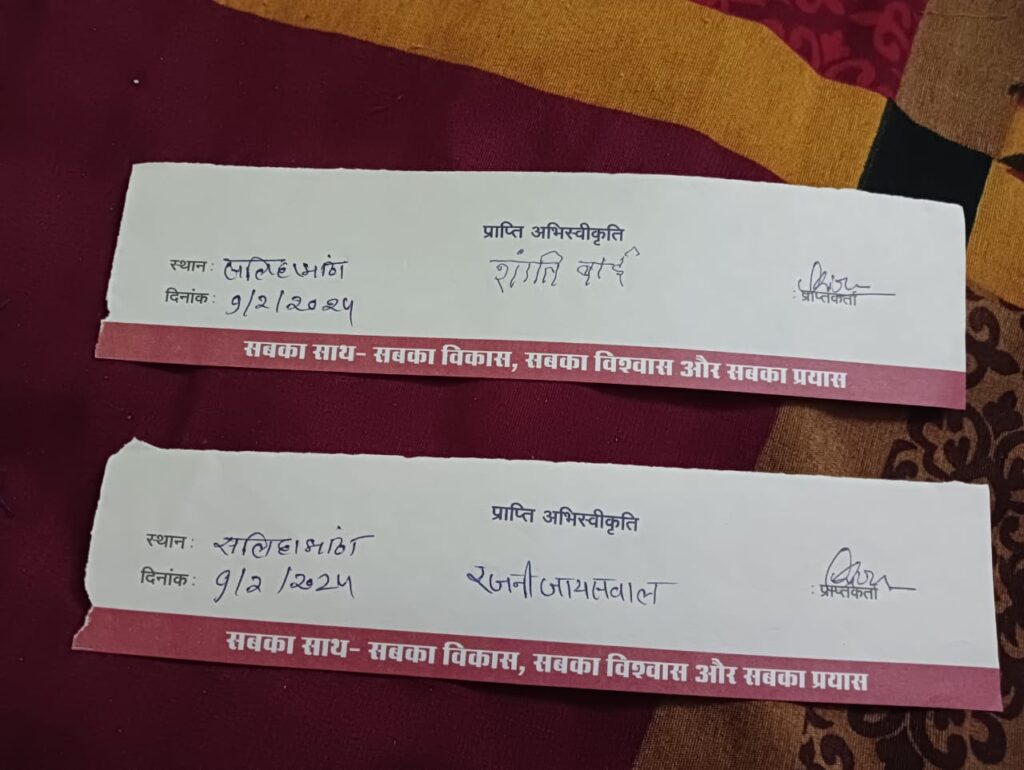 प्राप्ति अभिस्वीकृति
स्थान: सलिहाभांठा
शांति बाई
दिनांक: 9/2/2025
: प्राप्तिकर्ता
सबका साथ- सबका विकास, सबका विश्वास और सबका प्रयास
प्राप्ति अभिस्वीकृति
स्थान: सलिहाभांठा
दिनांक: 9/2/2025
रजनी जायसवाल
: प्राप्तिकर्ता
सबका साथ- सबका विकास, सबका विश्वास और सबका प्रयास